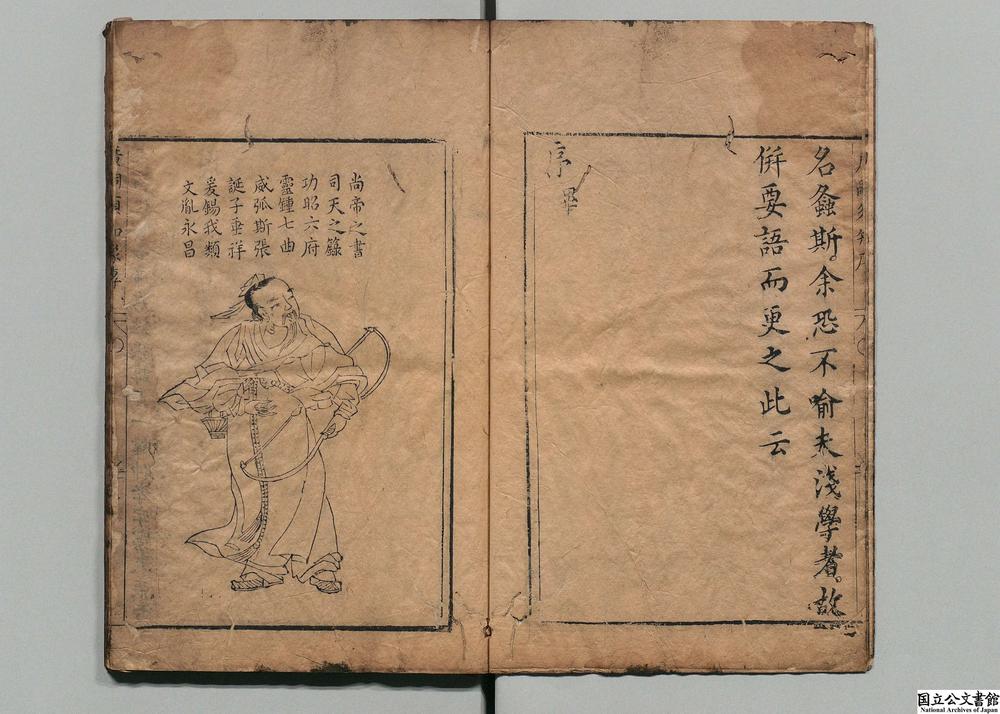 名螽斯余恐不喻夫淺學者故
併要語而更之此云
序畢
尚帝之書
司天之籙
功昭六府
靈鍾七曲
威弧斯張
誕子垂祥
爰錫我類
文胤永昌
国立公文書館
National Archives of Japan